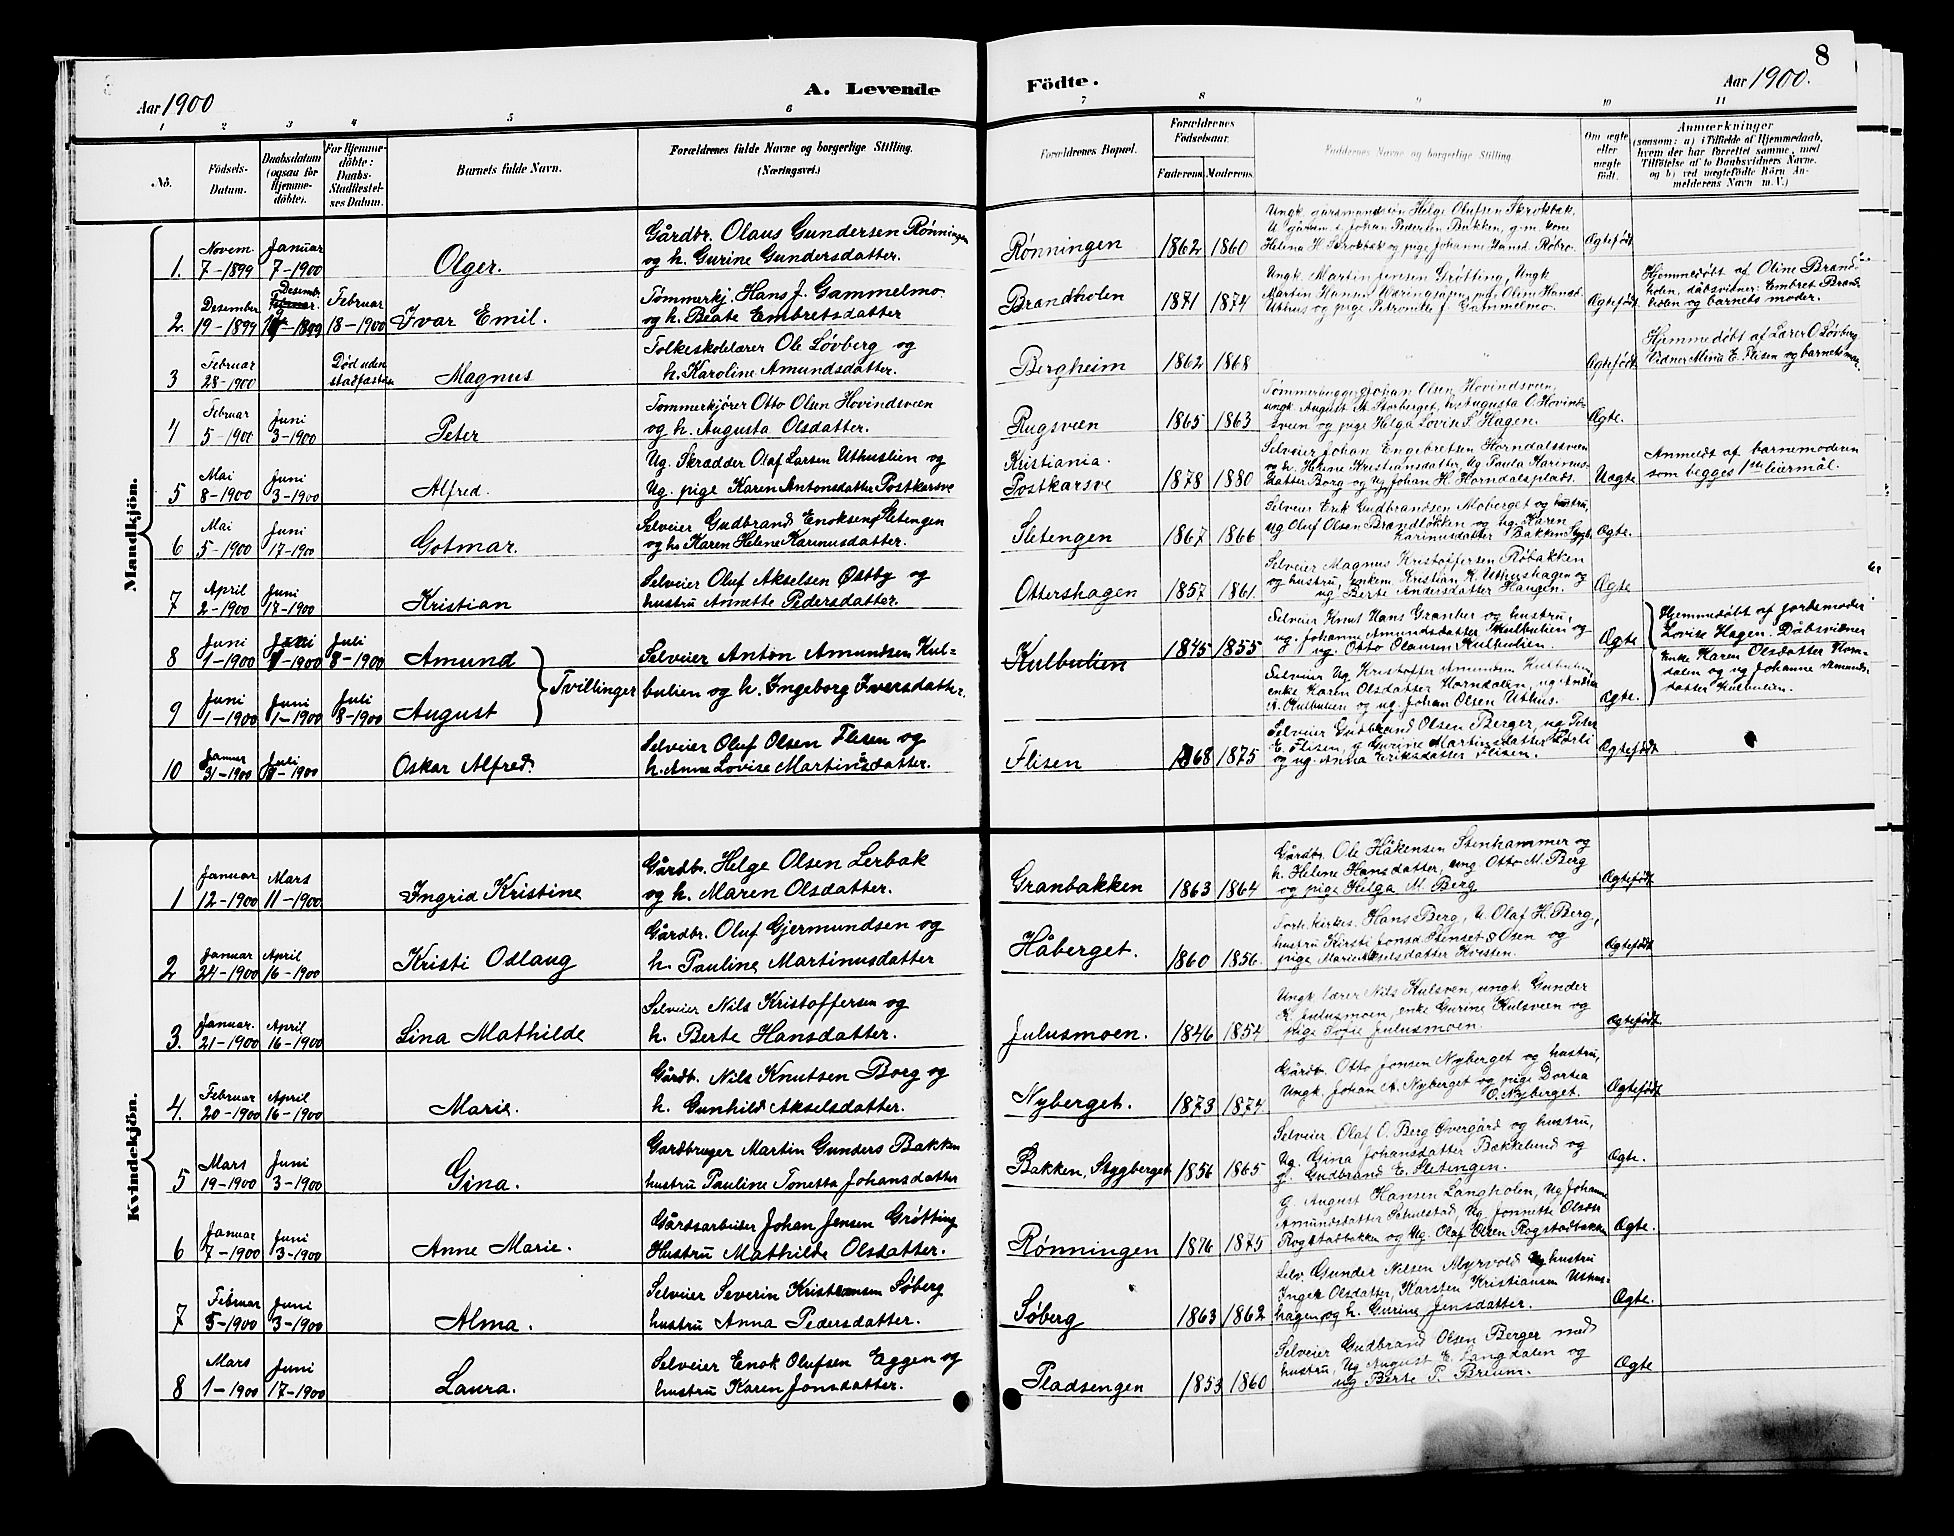 8
Aar 1900
A. Levende
Födte.
Aar 1900.
1 2 3 4 5 6 7 8 9 10 11
No.
Födsels-Datum.
Daabsdatum (ogsaa for Hjemme-döbte).
For Hjemme-döbte: Daabs-Stadfæstel-ses Datum.
Barnets fulde Navn.
Forældrenes fulde Navne og borgerlige Stilling. (Næringsvei.)
Forældrenes Bopæl.
Forældrenes Födselsaar.
Faderens Moderens
Faddernes Navne og borgerlige Stilling.
Om ægte eller uægte födt.
Anmærkninger
(saasom: a) i Tilfælde af Hjemmedaab,
hvem der har forrettet samme, med
Tilföielse af to Daabsvidners Navne,
og b) ved uægtefödte Börn An-
melderens Navn m. V.)
Mandkjön.
1. Novem. 7-1899 Januar 7-1900 Olger.
Gårdbr. Olaus Gundersen Rønningen
og h. Gurine Gundersdatter.
Rønningen 1862 1860
Ungk. gårdmandsøn Helge Olufsen Skrokbak,
U. gårdm. s. Johan Pedersen Bakken, g.m. kone
Helena H. Skrokbak og pige Johanne Hansd. Robro.
Ægtefødt
2. Desember 19-1899 Desemb. 1899 Februar 18-1900 Ivar Emil.
Tømmerkj. Hans J. Gammelmo
og h. Beate Embretsdatter
Brandholen 1871 1874
Ungk. Martin Jensen Grøtting, Ungk.
Martin Hansen pige Oline Hansd.
Uthus og pige Petronille J. Gammelmo.
Ægtefødt
Hjemmedøbt af Oline Brand-
holen, dåbsvidner: Embret Brand-
holen og barnets moder.
3 Februar 28-1900 Død uden stadfæstelse Magnus
Folkeskolelærer Ole Løvberg og
h. Karoline Amundsdatter.
Bergheim 1862 1868 Ægtefødt
Hjemmedøbt af Lærer O. Løvberg
Vidner Mina E. Flisen og barnets mor.
4 Februar 5-1900 Juni 3-1900 Peter
Tømmerkjører Otto Olsen Hovindsveen
og h. Augusta Olsdatter.
Rugsveen 1865 1863
Tømmerhugger Johan Olsen Hovindsveen,
ungk. August M. Storberget, h. Augusta O. Hovind-
sveen og pige Helga Lovise S. Hagen.
Ægte.
5 Mai 8-1900 Juni 3-1900 Alfred.
Ug. Skrædder Olaf Larsen Uthuslien og
Ug. pige Karen Antonsdatter Postkarsve
Kristiania.
Postkarsve 1878 1880
Selveier Johan Engebretsen Horndalssveen
og h. Helene Kristiansdatter, Ug Paula Karinus-
datter Borg og Ug Johan H. Horndalsplads.
Uægte
Anmeldt af barnemoderen
som begges 1ste leiermål.
6 Mai 5-1900 Juni 17-1900 Gotmar.
Selveier Gudbrand Enoksen Sletengen
og h. Karen Helene Karinusdatter.
Sletengen 1867 1866
Selveier Erik Gudbrandsen Moberget og hustru,
ug Oluf Olsen Brændløkken og ug. Karen
Karinusdatter Bakken Stygb.
Ægte.
7 April 2-1900 Juni 17-1900 Kristian
Selveier Oluf Akselsen Østby og
hustru Annette Pedersdatter.
Ottershagen 1857 1861
Selveier Magnus Kristoffersen Robakken
og hustru, enkem. Kristian K. Uthershagen og
ug. Berte Andersdatter Haugen.
Ægte
8 Juni 1-1900 Juni 1-1900 Juli 8-1900 Amund
9 Juni 1-1900 Juni 1-1900 Juli 8-1900 August
Tvillinger
Selveier Anton Amundsen Kul-
bulien og h. Ingeborg Iversdatter.
Kulbulien 1845 1855
Selveier Knut Hans Granber og hustru,
ug. Johanne Amundsdatter Kulbulien og
ug. Otto Olausen Kulbulien.
Ægte
Selveier Ug Kristoffer Amundsen Kulbulien
enke Karen Olsdatter Horndalen, ug Andrea
A. Kulbulien og ug. Johan Olsen Uthus.
Ægte.
Hjemmedøbt af jordemoder
Lovise Hagen. Dåbsvidner
enke Karen Olsdatter Horn-
dalen og ug Johanne Amunds-
datter Kulbulien.
10 Januar 31-1900 Juli 8-1900 Oskar Alfred.
Selveier Oluf Olsen Flisen og
h. Anne Lovise Martinusdatter.
Flisen 1868 1875
Selveier Gudbrand Olsen Berger, ug Peter
E. Flisen, g Gurine Martinsdatter Lørli
og ug. Anna Eriksdatter Flisen.
Ægtefødt
Kvindekjön.
1 Januar 12-1900 Mars 11-1900 Ingrid Kristine
Gårdbr. Helge Olsen Lerbak
og h. Maren Olsdatter.
Granbakken 1863 1864
Gårdbr. Ole Håkensen Stenhammer og
h. Helene Hansdatter, ung. Otto M. Berg
og pige Helga M. Berg
Ægtefødt
2 Januar 24-1900 April 16-1900 Kristi Odlaug
Gårdbr. Oluf Gjermundsen og
h. Pauline Martinusdatter
Håberget. 1860 1856.
Forh. Kirkes. Hans Berg, U. Olaf H. Berg,
hustru Kirsti Jonsd. Stenset Osen og
pige Marie Akselsdatter Kvisten.
Ægtefødt
3. Januar. 21-1900 April 16-1900 Lina Mathilde
Selveier Nils Kristoffersen og
h. Berte Hansdatter.
Julusmoen. 1846 1854
Ungk. lærer Nils Kulsven, ungk. Gunder
K. Julusmoen, enke Gurine Kulsveen og
pige Julusmoen.
Ægtefødt
4. Februar 20-1900 April 16-1900 Marie.
Gårdb. Nils Knutsen Borg og
h. Gunhild Akselsdatter.
Nyberget. 1873 1874
Gårdb. Otto Jonsen Nyberget og hustru,
Ungk. Johan A. Nyberget og pige Dortea
O. Nyberget.
Ægtefødt
5 Mars 19-1900 Juni 3-1900 Gina.
Gårdbruger Martin Gunders Bakken
hustru Pauline Tonetta Johansdatter
Bakken, Stygberget 1856 1865
Selveier Olaf O. Berg Øvergård og hustru,
Ug. Gina Johansdatter Bækkelund og
g. Gudbrand E. Sletengen.
Ægte.
6 Januar 7-1900 Juni 3-1900 Anne Marie.
Gårdsarbeider Johan Jensen Grøtting
Hustru Mathilde Olsdatter.
Rønningen 1876 1875
g. August Hansen Langholen, Ug Johanne
Amundsdatter Schulstad, Ug. Jonnette Olsdtr
Rogstadbakken og Ug. Olaf Olsen Rogstadbakken
Ægte.
7 Februar 5-1900 Juni 3-1900 Alma.
Selveier Severin Kristiansen Søberg
hustru Anna Pedersdatter.
Søberg 1863 1862
Selv. Gunder Nilsen Myrvold og hustru
Inger Olsdatter, Karsten Kristiansen Uthus-
hagen og h. Gurine Jensdatter.
Ægte.
8 Mars 1-1900 Juni 17-1900 Laura.
Selveier Enok Olufsen Eggen og
hustru Karen Jonsdatter.
Pladsengen 1853 1860
Selveier Gudbrand Olsen Berger med
hustru, Ug August E. Langdalen og
ug Berte P. Breum.
Ægte